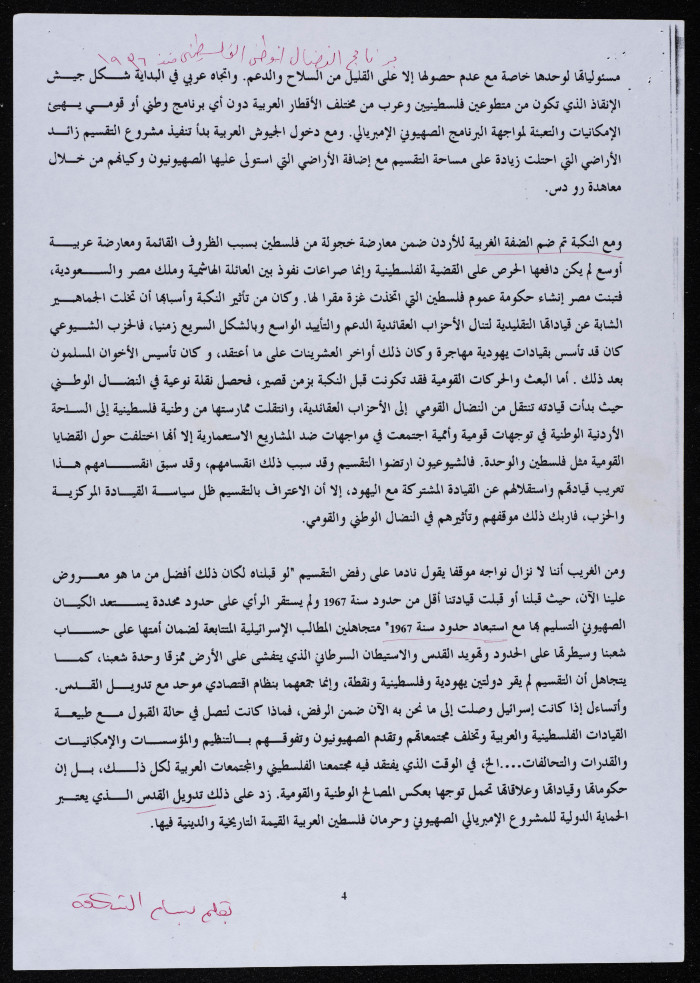 برنامج النضال الوطني الفلسطيني منذ ١٩٣٦
مسئولياتها لوحدها خاصة مع عدم حصولها إلا على القليل من السلاح والدعم. واتجاه عربي في البداية شكل جيش
الإنقاذ الذي تكون من متطوعين فلسطينيين وعرب من مختلف الأقطار العربية دون أي برنامج وطني أو قومي يهيئ
الإمكانيات والتعبئة لمواجهة البرنامج الصهيوني الإمبريالي. ومع دخول الجيوش العربية بدأ تنفيذ مشروع التقسيم زائد
الأراضي التي احتلت زيادة على مساحة التقسيم مع إضافة الأراضي التي استولى عليها الصهيونيون وكيانهم من خلال
معاهدة رو دس.
ومع النكبة تم ضم الضفة الغربية للأردن ضمن معارضة خجولة من فلسطين بسبب الظروف القائمة ومعارضة عربية
أوسع لم يكن دافعها الحرص على القضية الفلسطينية وإنما صراعات نفوذ بين العائلة الهاشمية وملك مصر والسعودية،
فتبنت مصر إنشاء حكومة عموم فلسطين التي اتخذت غزة مقرا لها. وكان من تأثير النكبة وأسبابها أن تخلت الجماهير
الشابة عن قياداتها التقليدية لتنال الأحزاب العقائدية الدعم والتأييد الواسع وبالشكل السريع زمنيا، فالحزب الشيوعي
كان قد تأسس بقيادات يهودية مهاجرة وكان ذلك أواخر العشرينات على ما أعتقد، و كان تأسيس الأخوان المسلمون
بعد ذلك . أما البعث والحركات القومية فقد تكونت قبل النكبة بزمن قصير، فحصل نقلة نوعية في النضال الوطني
حيث بدأت قيادته تنتقل من النضال القومي إلى الأحزاب العقائدية، وانتقلت ممارستها من وطنية فلسطينية إلى الساحة
الأردنية الوطنية في توجهات قومية وأممية اجتمعت في مواجهات ضد المشاريع الاستعمارية إلا أنها اختلفت حول القضايا
القومية مثل فلسطين والوحدة. فالشيوعيون ارتضوا التقسيم وقد سبب ذلك انقسامهم، وقد سبق انقسامهم هذا
تعريب قيادتهم واستقلالهم عن القيادة المشتركة مع اليهود، إلا أن الاعتراف بالتقسيم ظل سياسة القيادة المركزية
والحزب، فاربك ذلك موقفهم وتأثيرهم في النضال الوطني والقومي.
ومن الغريب أننا لا نزال نواجه موقفا يقول نادما على رفض التقسيم "لو قبلناه لكان ذلك أفضل من ما هو معروض
علينا الآن، حيث قبلنا أو قبلت قيادتنا أقل من حدود سنة 1967 ولم يستقر الرأي على حدود محددة يستعد الكيان
الصهيوني التسليم بها مع استبعاد حدود سنة 1967" متجاهلين المطالب الإسرائيلية المتتابعة لضمان أمنها على حساب
شعبنا وسيطرتها على الحدود وتهويد القدس والاستيطان السرطاني الذي يتفشى على الأرض ممزقا وحدة شعبنا، كما
يتجاهل أن التقسيم لم يقر دولتين يهودية وفلسطينية ونقطة، وإنما جمعهما بنظام اقتصادي موحد مع تدويل القدس.
وأتساءل إذا كانت إسرائيل وصلت إلى ما نحن به الآن ضمن الرفض، فماذا كانت لتصل في حالة القبول مع طبيعة
القيادات الفلسطينية والعربية وتخلف مجتمعاتهم وتقدم الصهيونيون وتفوقهم بالتنظيم والمؤسسات والإمكانيات
والقدرات والتحالفات....الخ، في الوقت الذي يفتقد فيه مجتمعنا الفلسطيني والمجتمعات العربية لكل ذلك، بل إن
حكوماتها وقياداتها وعلاقاتها تحمل توجها بعكس المصالح الوطنية والقومية. زد على ذلك تدويل القدس الذي يعتبر
الحماية الدولية للمشروع الإمبريالي الصهيوني وحرمان فلسطين العربية القيمة التاريخية والدينية فيها.
4
بقلم بسام الشكعة